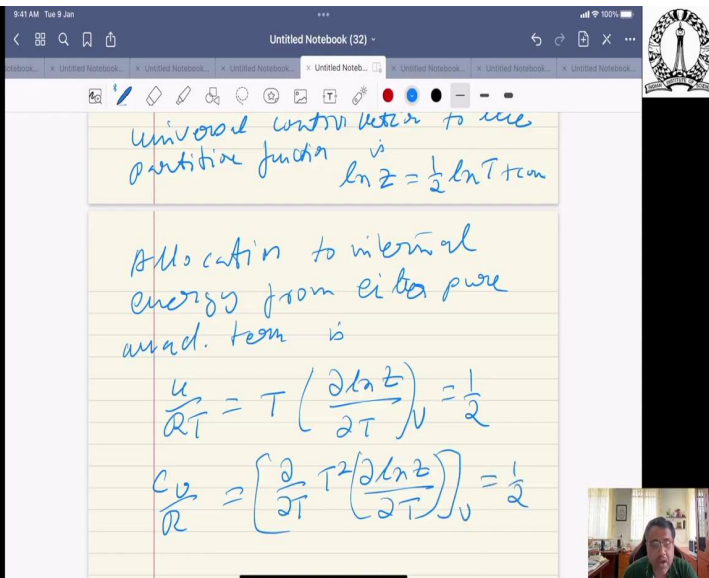 9:41 AM Tue 9 Jan
100%
Untitled Notebook (32)
otebook... × Untitled Notebook... × Untitled Notebook... × Untitled Notebook... × Untitled Noteb... × Untitled Notebook... × Untitled Notebook... × Untitled Notebook...
universal contribution to the
partition function is
ln z = 1/2 ln T + con
Allocation to internal
energy from either pure
quad. term is
u/RT = T (∂ ln z/∂T)_V = 1/2
C_V/R = [∂/∂T T² (∂ ln z/∂T)]_V = 1/2